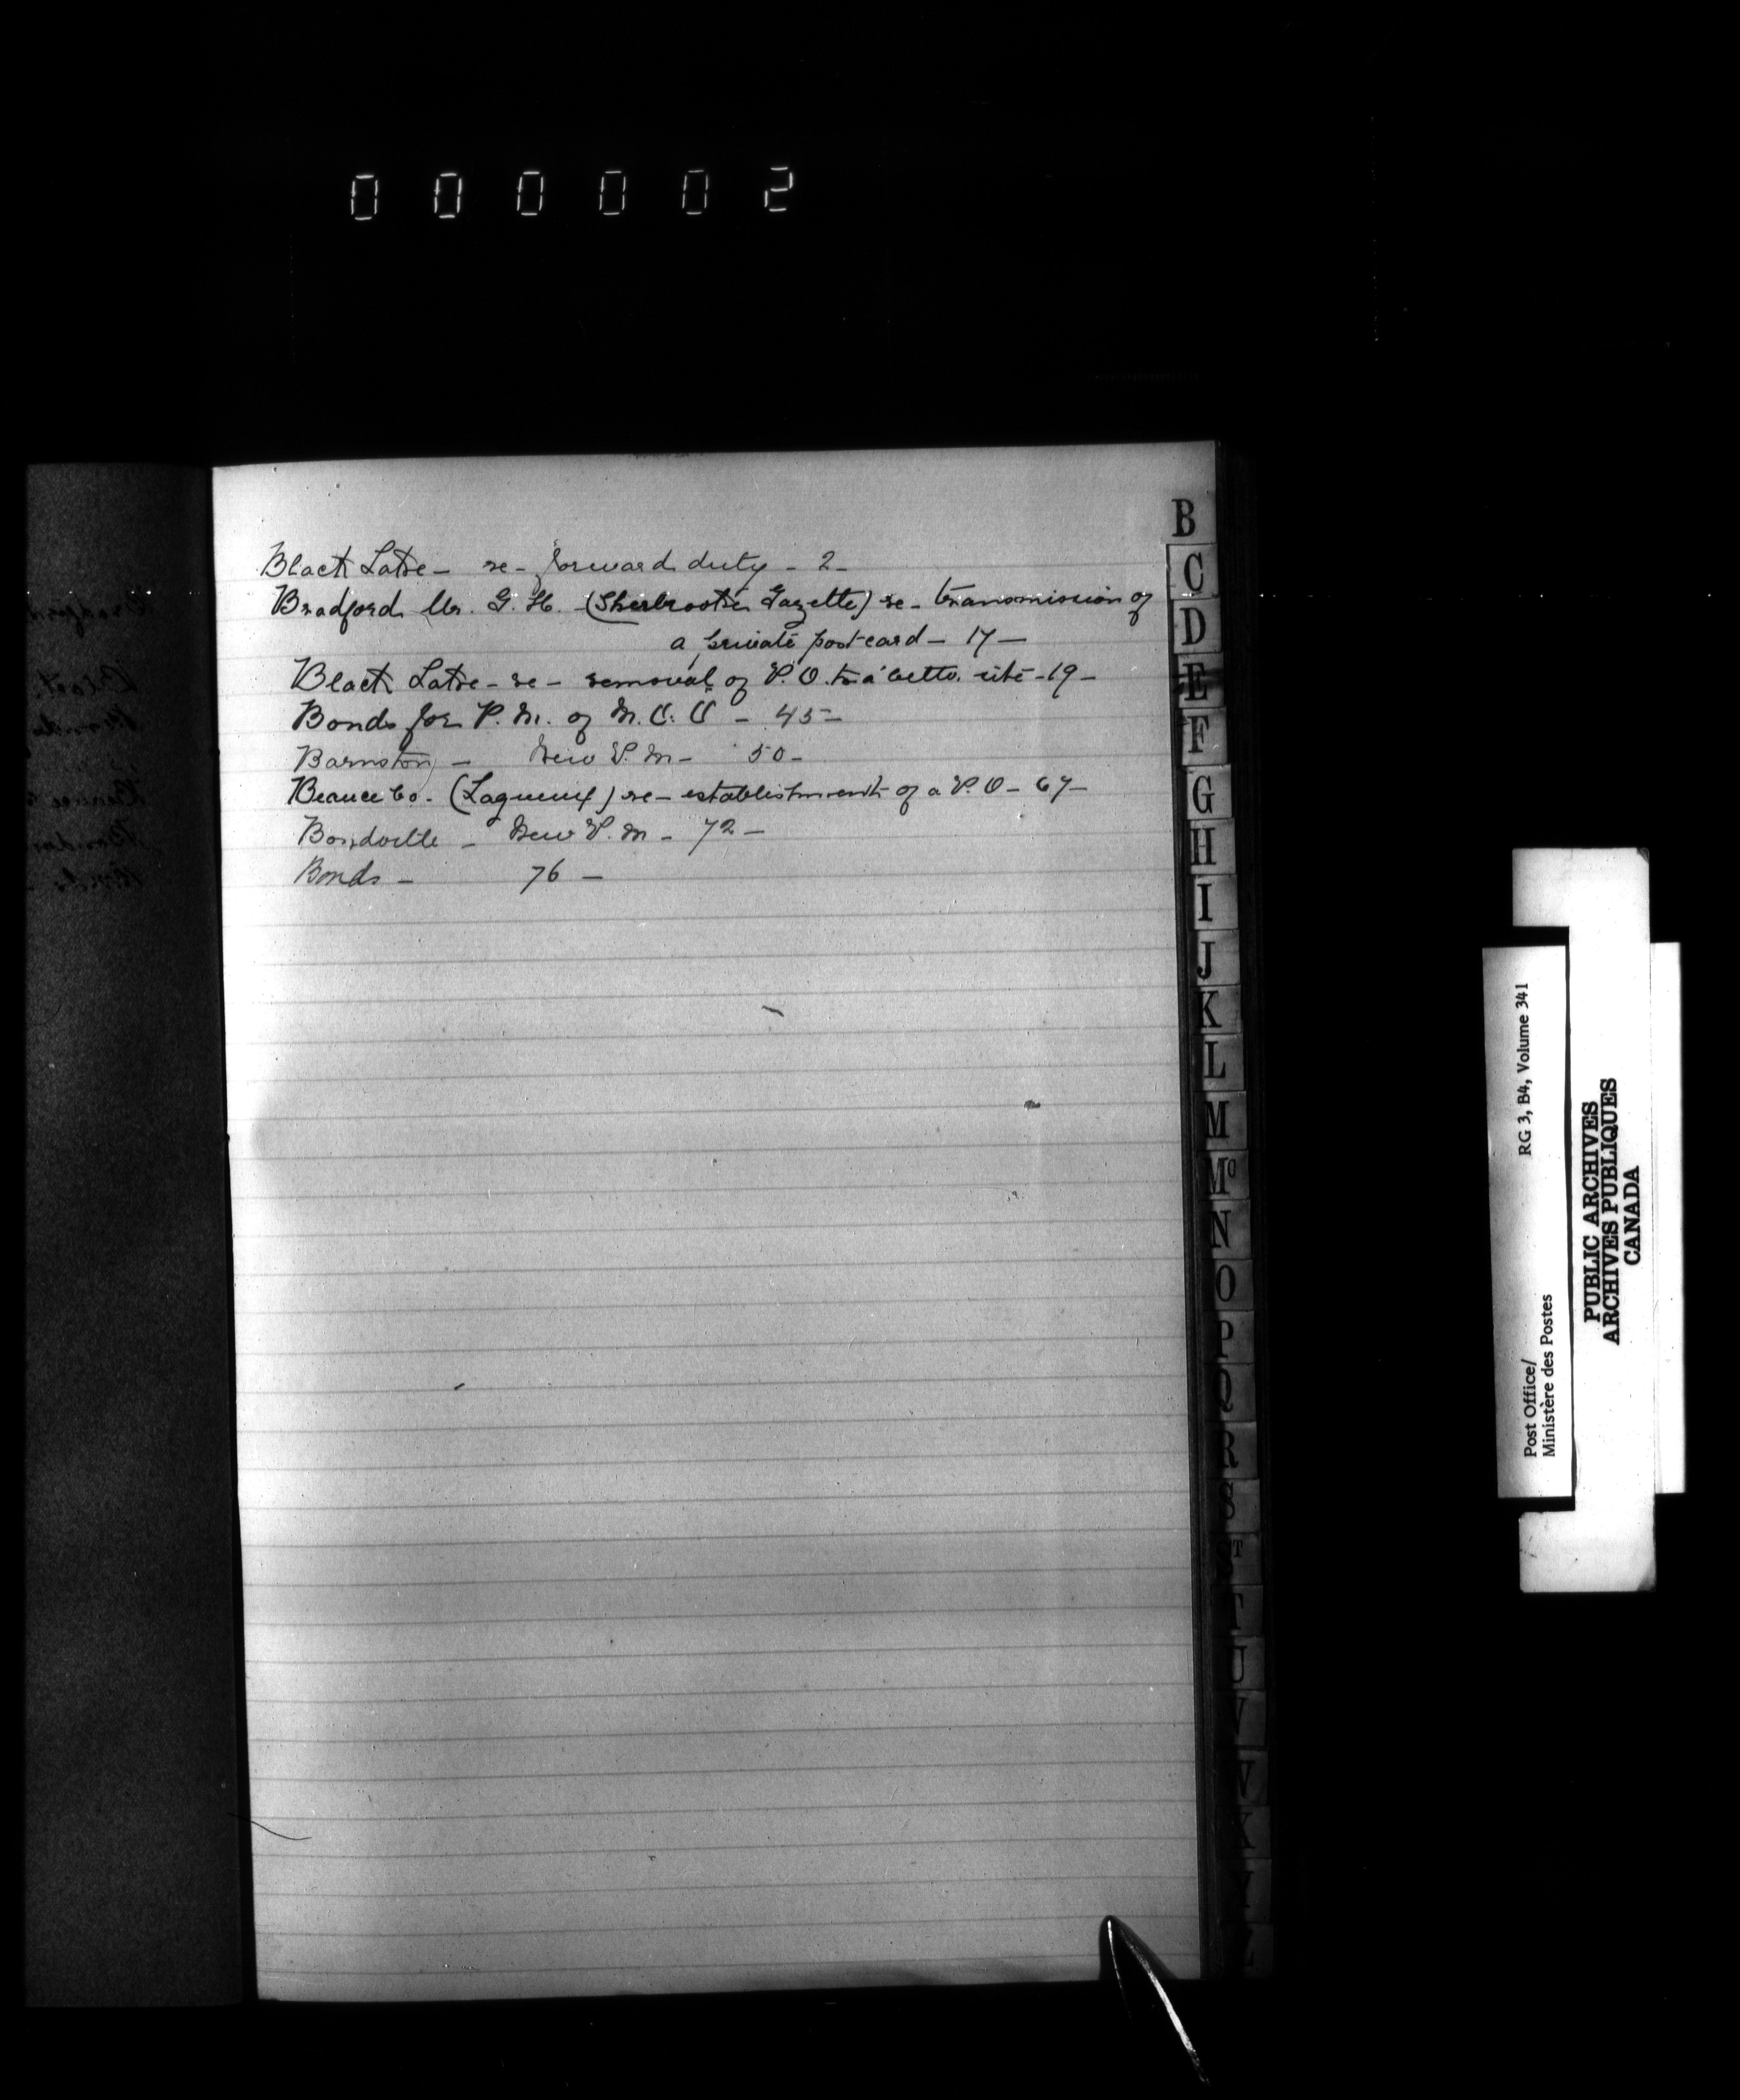 000002
Black Lake - re - forward duty - 2 -
Bradford Mr. G. H. - (Sherbrooke Gazette) re - transmission of
a private post-card - 17 -
Black Lake - re - removal of P.O. to a better site - 19 -
Bonds for P.M. of M.O.O - 45 -
Barnston - New P.M - 50 -
Beauce Co. (Lagueux) re - establishment of a P.O - 67 -
Bondville - New P.M - 72 -
Bonds - 76 -
B
C
D
E
F
G
H
I
J
K
L
M
Mc
N
O
P
Q
R
S
ST
T
U
V
W
X
Y
Z
Post Office/ RG 3, B4, Volume 341
Ministère des Postes
PUBLIC ARCHIVES
ARCHIVES PUBLIQUES
CANADA